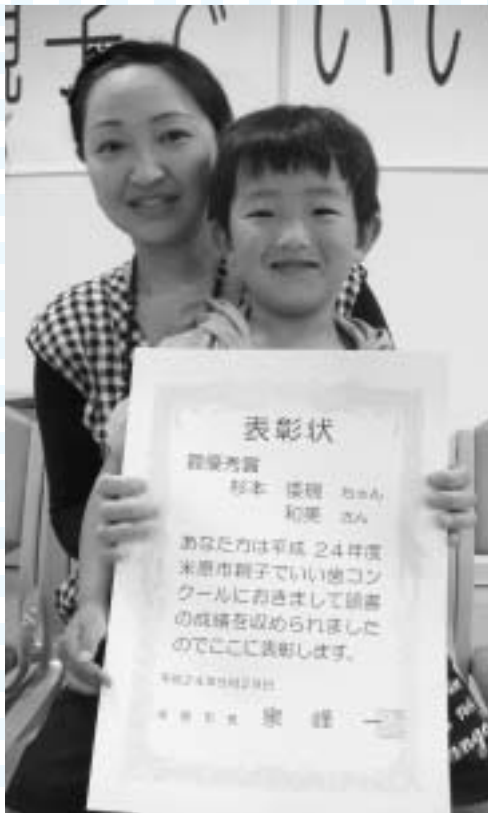 親子でいい
表彰状
最優秀賞
杉本 ちゃん
和美 さん
あなた方は平成24年度
米原市親子でいい歯コン
クールにおきまして頭書
の成績を収められました
のでここに表彰します。
平成24年9月29日
泉 峰 一